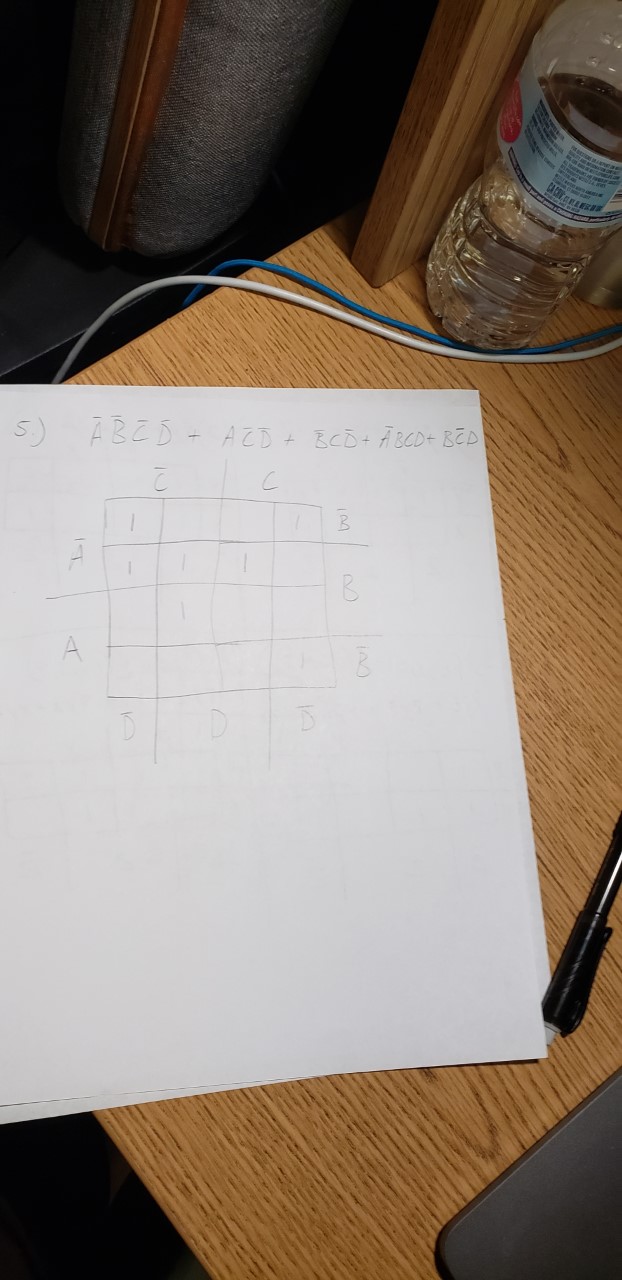 5.) A̅ B̅ C̅ D̅ + A C̅ D̅ + B̅ C D̅ + A̅ B C D + B C̅ D
C̅ C
1 1 B̅
A̅ 1 1 1
B
1
A 1 B̅
D̅ D D̅